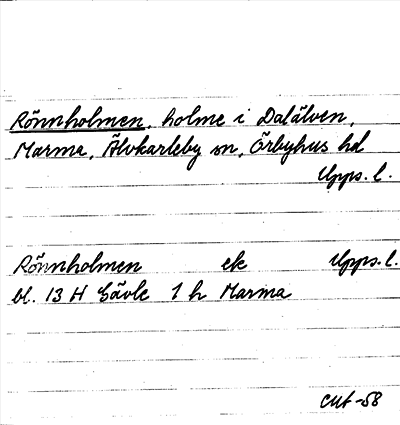 Rönnholmen, holme i Dalälven,
Marma, Älvkarleby sn, Örbyhus hd
Upps. l.
Rönnholmen ek Upps. l.
bl. 13 H Gävle 1 h Marma
CMt -58